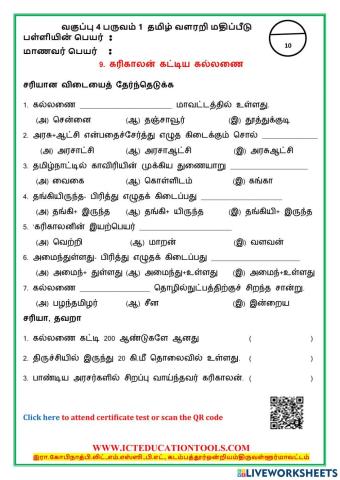 வகுப்பு 4 பருவம் 1 தமிழ் வளரறி மதிப்பீடு
பள்ளியின் பெயர் :
மாணவர் பெயர் :
10
9. கரிகாலன் கட்டிய கல்லணை
சரியான விடையைத் தேர்ந்தெடுக்க
1. கல்லணை ____________________ மாவட்டத்தில் உள்ளது.
(அ) சென்னை (ஆ) தஞ்சாவூர் (இ) தூத்துக்குடி
2. அரசு+ஆட்சி என்பதைச்சேர்த்து எழுத கிடைக்கும் சொல் ____________
(அ) அரசாட்சி (ஆ) அரசாஆட்சி (இ) அரசுஆட்சி
3. தமிழ்நாட்டில் காவிரியின் முக்கிய துணையாறு ____________
(அ) வைகை (ஆ) கொள்ளிடம் (இ) கங்கா
4. தங்கியிருந்த- பிரித்து எழுதக் கிடைப்பது ____________
(அ) தங்கி+ இருந்த (ஆ) தங்கி+ யிருந்த (இ) தங்கியி+ இருந்த
5. 'கரிகாலனின் இயற்பெயர் ____________
(அ) வெற்றி (ஆ) மாறன் (இ) வளவன்
6. அமைந்துள்ளது- பிரித்து எழுதக் கிடைப்பது ____________
(அ) அமைந்+ துள்ளது (ஆ) அமைந்து+உள்ளது (இ) அமைந்+உள்ளது
7. கல்லணை ____________ தொழில்நுட்பத்திற்குச் சிறந்த சான்று.
(அ) பழந்தமிழர் (ஆ) சீன (இ) இன்றைய
சரியா, தவறா
1. கல்லணை கட்டி 200 ஆண்டுகளே ஆனது ( )
2. திருச்சியில் இருந்து 20 கி.மீ தொலைவில் உள்ளது. ( )
3. பாண்டிய அரசர்களில் சிறப்பு வாய்ந்தவர் கரிகாலன். ( )
Click here to attend certificate test or scan the QR code
WWW.ICTEDUCATIONTOOLS.COM
இரா.கோபிநாத்.பி.லிட்.எம்.எஸ்ஸி.பி.எட்., கடம்பத்தூர்ஒன்றியம்திருவள்ளூர்மாவட்டம்
LIVEWORKSHEETS